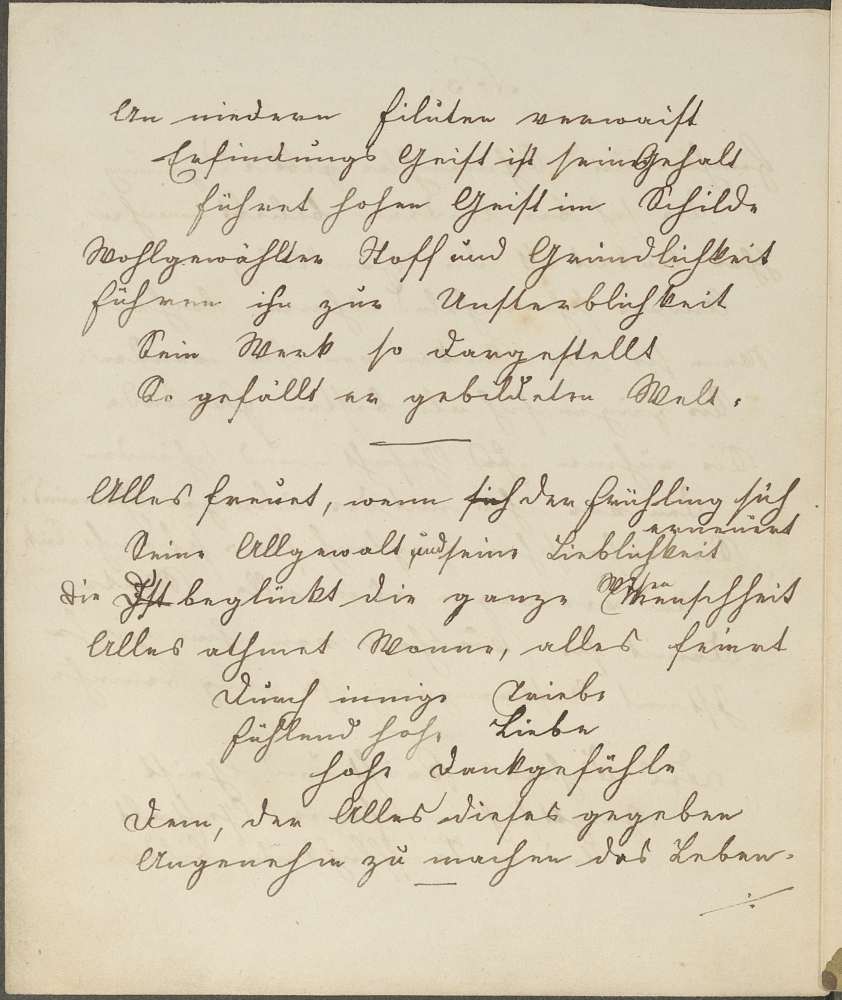 An niedern Filuten verwaist
Erfindungs Geist ist sein Gehalt
führet hohen Geist im Schilde
Wohlgewählter Stoff und Gründlichkeit
führen ihn zur Unsterblichkeit
Sein Werk so dargestellt
So gefällt er gebildeten Welt.
Alles freuet, wenn sich der Frühling sich
erneuert
Seine Allgewalt und seine Lieblichkeit
die Ist beglückt die ganze Menschheit
Alles athmet Wonne, alles feiert
Durch innige Triebe
fühlend hohe Liebe
hohe Dankgefühle
Dem, der Alles dieses gegeben
Angenehm zu machen das Leben.